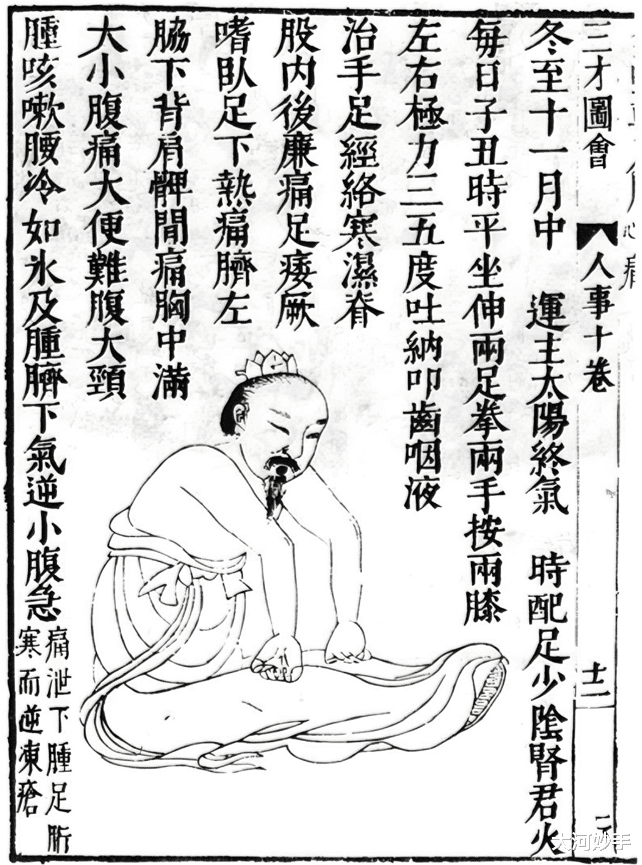 三才圖會
人事十卷
十二
冬至十一月中　運主太陽終氣　時配足少陰腎君火
每日子丑時平坐伸兩足拳兩手按兩膝
左右極力三五度吐納叩齒咽液
治手足經絡寒濕脊
股內後廉痛足痿厥
嗜臥足下熱痛臍左
脇下背肩髀間痛胸中滿
大小腹痛大便難腹大頸
腫咳嗽腰冷如氷及腫臍下氣逆小腹急
痛泄下腫足䯒
寒而逆凍瘡
大河妙手